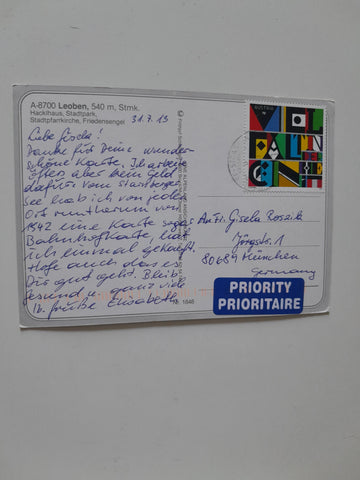 A-8700 Leoben, 540 m, Stmk.
Hacklhaus, Stadtpark,
Stadtpfarrkirche, Friedensengel
31.7.13
Liebe Gisela!
Danke für Deine wunder-
schöne Karte. Ich
öfters aber kein Geld
dafür. Vom Starnberger-
see hab ich von jeden
Ort rundherum von
1942 eine Karte sogar
Bahnhofkarte, hat
ich einmal gekauft.
Hoffe auch das es
Dir gut geht. Bleib
Gesund u. ganz viele
lb. Grüße Elisabeth
An Fr. Gisela
Jörgstr. 1
80689 München
Germany
AUSTRIA
PRIORITY
PRIORITAIRE
1646